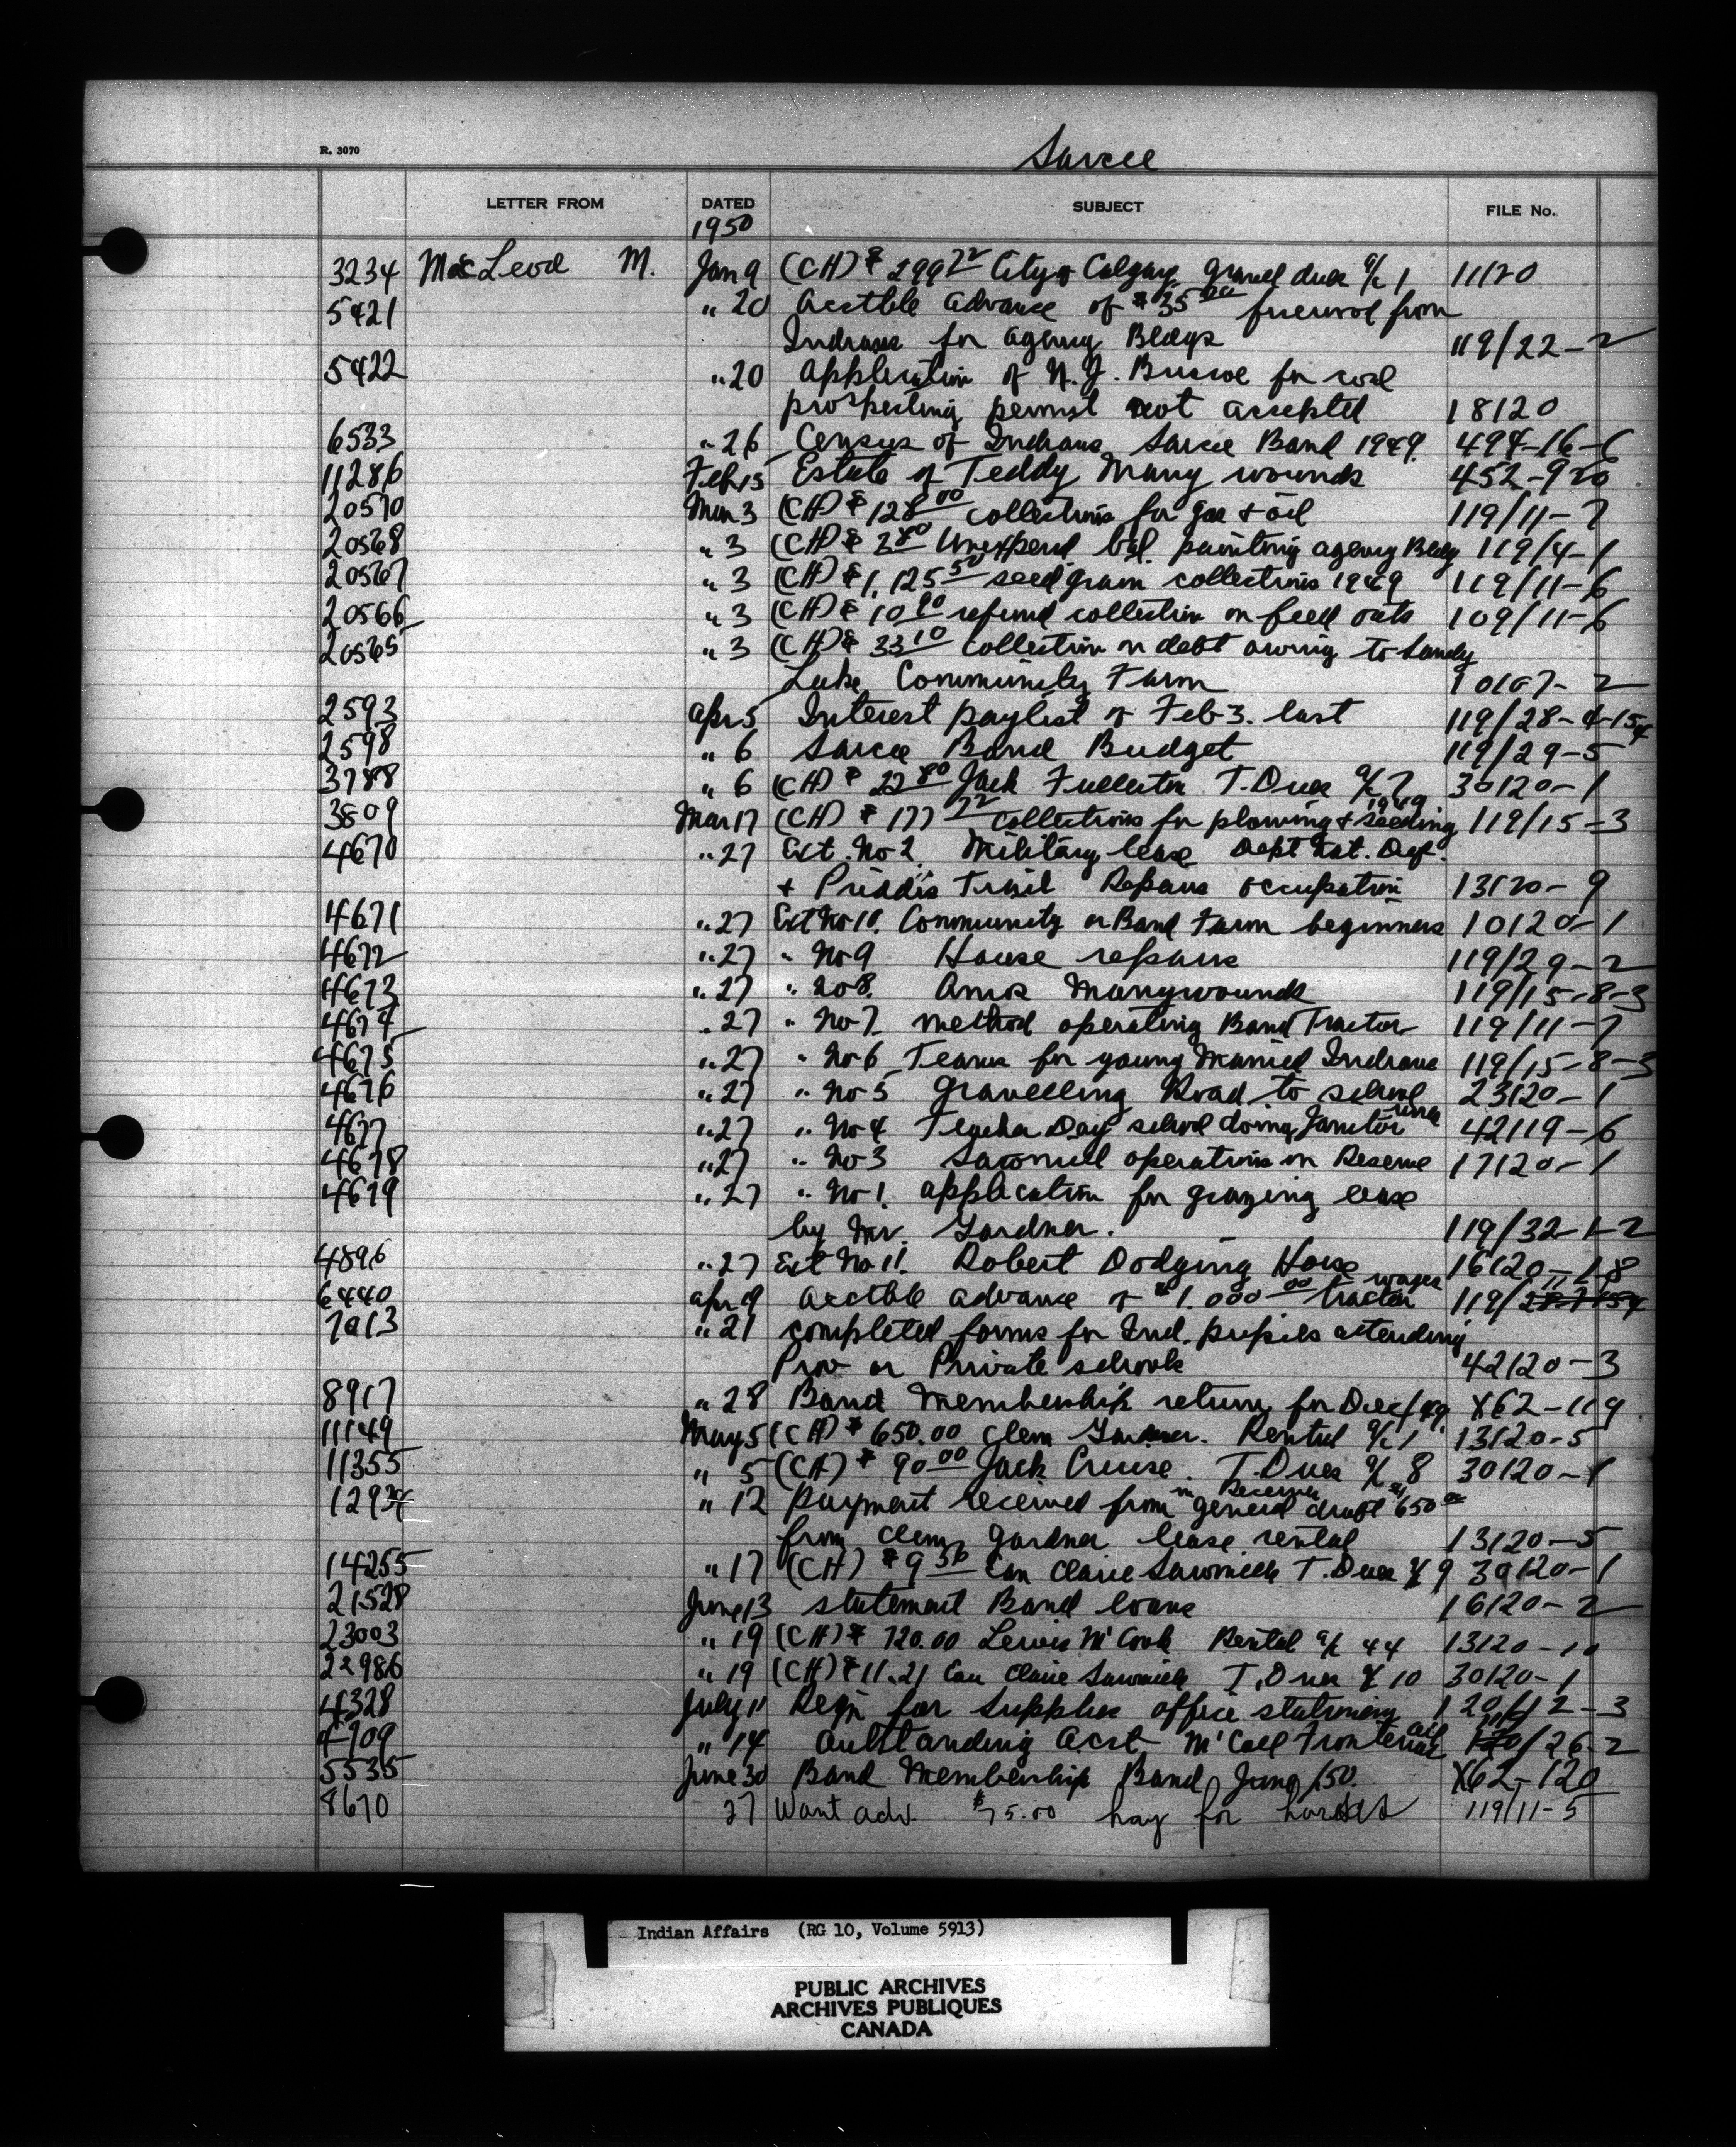 R. 3070
Sarcee
LETTER FROM DATED SUBJECT FILE No.
1950
3234 MacLeod M. Jan 9 (CH) $ 299 72 City of Calgary gravel dues a/c 1 11120
5421 " 20 Acctble advance of $ 35 00 firewood from
Indians for agency Bldgs 119/22-2
5422 " 20 application of N.J. Briscoe for coal
prospecting permit not accepted 18120
6533 " 26 Census of Indians Sarcee Band 1949. 494-16-6
11286 Feb 15 Estate of Teddy Many wounds 452-920
20570 Mar 3 (CH) $ 128 00 collections for gas & oil 119/11-7
20568 " 3 (CH) $ 2 80 Unexpend. bal. painting agency Bldg 119/4-1
20567 " 3 (CH) $ 1,125 50 seed grain collections 1949 119/11-6
20566 " 3 (CH) $ 10 90 refund collection on feed oats 109/11-6
20565 " 3 (CH) $ 33 10 collection on debt owing to Sandy
Lake Community Farm 10107-2
2593 Apr 5 Interest paylist of Feb 3. last 119/28-4-154
2598 " 6 Sarcee Band Budget 119/29-5
3788 " 6 (CH) $ 22 80 Jack Fullerton T. Dues a/c 7 30120-1
3809 Mar 17 (CH) $ 177 72 collections for plowing & seeding 1949 119/15-3
4670 " 27 Ext. No 2. Military lease Dept Nat. Def.
& Priddis Trail Repairs occupation 13120-9
4671 " 27 Ext No 10. Community or Band Farm beginners 10120-1
4672 " 27 " No 9 House repairs 119/29-2
4673 " 27 " No 8. Amos Manywounds 119/15-8-3
4674 " 27 " No 7. method operating Band Tractor 119/11-7
4675 " 27 " No 6 Teams for young Married Indians 119/15-8-3
4676 " 27 " No 5 Gravelling Road to school 23120-1
4677 " 27 " No 4 Teacher Day school doing Janitor work 42119-6
4678 " 27 " No 3 Sawmill operations on Reserve 17120-1
4679 " 27 " No 1. application for grazing lease
by Mr. Gardner. 119/32-1-2
4896 " 27 Ext No 11. Robert Dodging Horse 16120-18
6440 Apr 19 Acctble advance of $ 1.000 00 tractor wages 119/
7013 " 21 completed forms for Ind. pupils attending
Prov or Private schools 42120-3
8917 " 28 Band Membership return for Dec/49. X62-119
11149 May 5 (CH) $ 650.00 Clem Gardner. Rental a/c 1 13120-5
11355 " 5 (CH) $ 90 00 Jack Cruise. T. Dues a/c 8 30120-1
12934 " 12 payment received from Receiver general draft $ 650 00
from Clem Gardner lease rental 13120-5
14255 " 17 (CH) $ 9 36 Eau Claire Sawmills T. Dues a/c 9 30120-1
21528 June 13 statement Band loans 16120-2
23003 " 19 (CH) $ 720.00 Lewis McCook Rental a/c 44 13120-10
22986 " 19 (CH) $ 11.21 Eau Claire Sawmills T. Dues a/c 10 30120-1
4328 July 11 Reqn for supplies office stationery 120/12-3
4709 " 14 Outstanding Acct McColl Frontenac oil /26-2
5535 June 30 Band Membership Band June/50. X62-120
8670 27 Want adv. $75.00 hay for horses 119/11-5
Indian Affairs (RG 10, Volume 5913)
PUBLIC ARCHIVES
ARCHIVES PUBLIQUES
CANADA